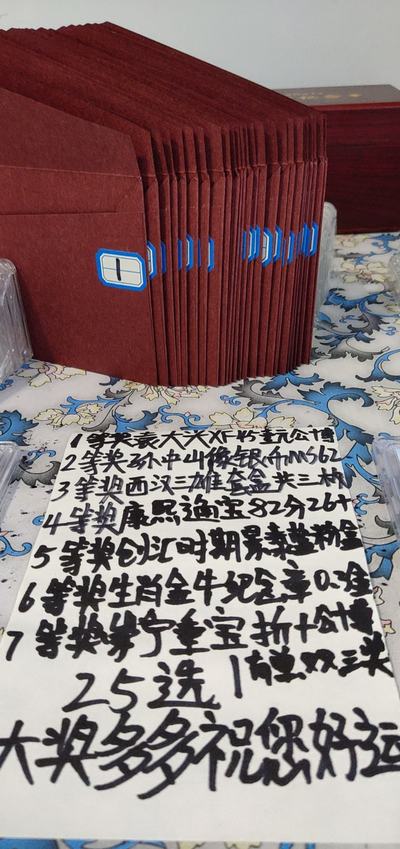 1
1等奖袁大头XF45重元公博
2等奖孙中山像银币MS62
3等奖西汉三雄套盒共三枚
4等奖康熙通宝82分26+
5等奖创汇时期景泰蓝粉盒
6等奖生肖金牛纪念章
7等奖崇宁重宝折十公博
25选1有单双三奖
大奖多多祝您好运